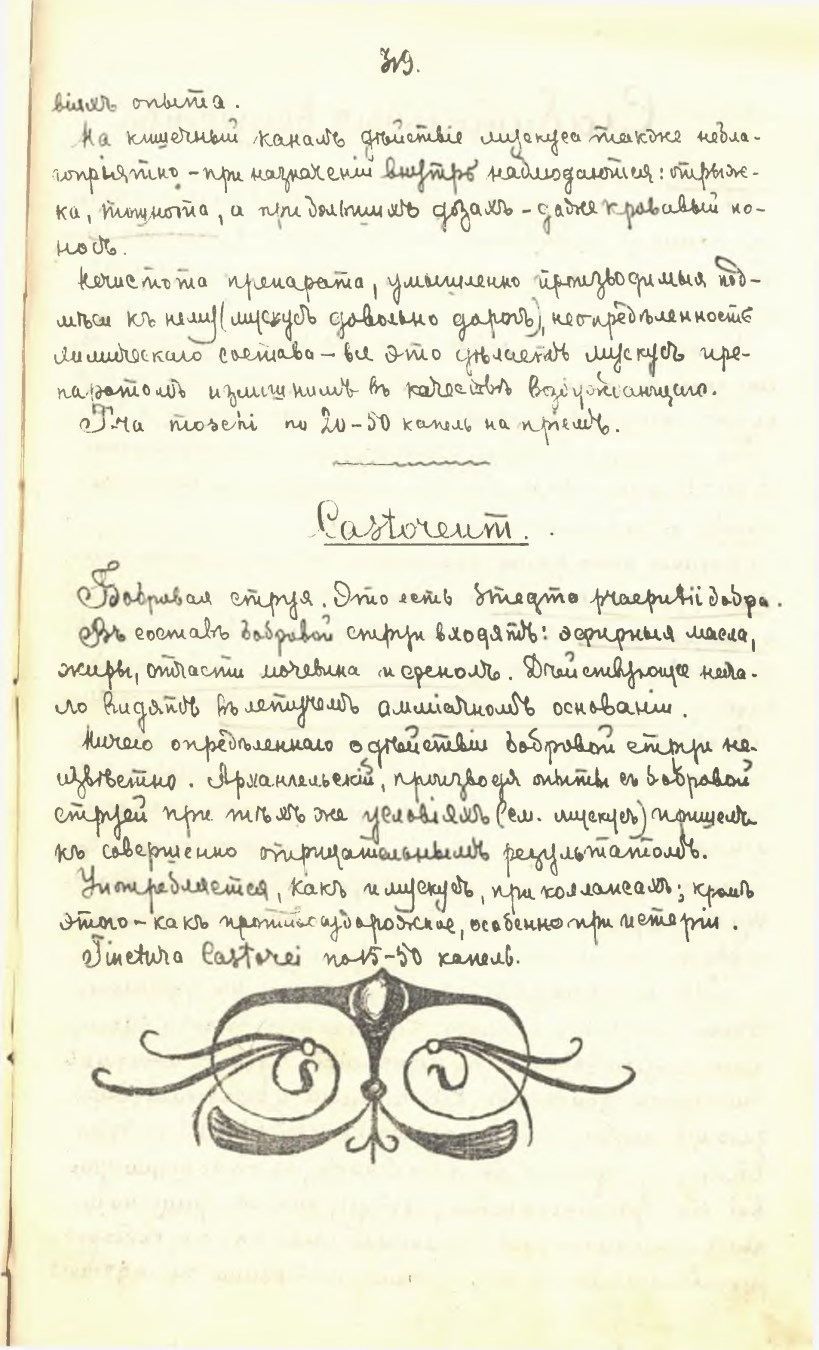 віямъ опыта.
На кишечный каналъ дѣйствіе мускуса также небла-
гопріятно – при назначеніи внутрь наблюдаются: отрыж-
ка, тошнота, а при большихъ дозахъ – даже кровавый по-
носъ.
Нечистота препарата, умышленно производимыя под-
мѣси къ нему (мускусъ довольно дорогъ), неопредѣленность
химическаго состава – все это дѣлаетъ мускусъ пре-
паратомъ излишнимъ въ качествѣ возбуждающаго.
T-ra moschi по 20–50 капель на пріемъ.
Castoreum.
Бобровая струя. Это есть smegma praeputii бобра.
Въ составъ бобровой струи входятъ: эфирныя масла,
жиры, отчасти мочевина и фенолъ. Дѣйствующее нача-
ло видятъ въ летучемъ амміачномъ основаніи.
Ничего опредѣленнаго о дѣйствіи бобровой струи не-
извѣстно. Архангельскій, производя опыты съ бобровой
струей при тѣхъ же условіяхъ (см. мускусъ) пришелъ
къ совершенно отрицательнымъ результатомъ.
Употребляется, какъ и мускусъ, при коллапсахъ; кромѣ
этого – какъ противосудорожное, особенно при истеріи.
Tinctura Castorei по 15–50 капель.